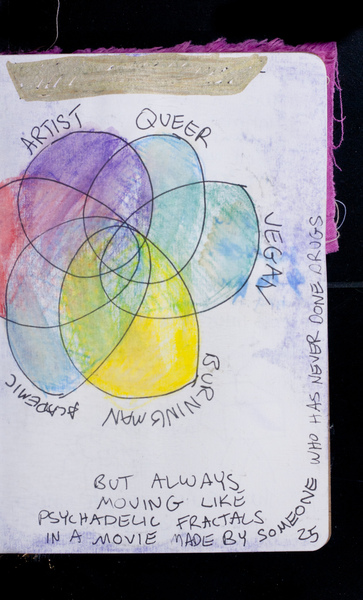 ARTIST
QUEER
VEGAN
BURNINGMAN
ACADEMIC
BUT ALWAYS
MOVING LIKE
PSYCHADELIC FRACTALS
IN A MOVIE MADE BY SOMEONE WHO HAS NEVER DONE DRUGS
25